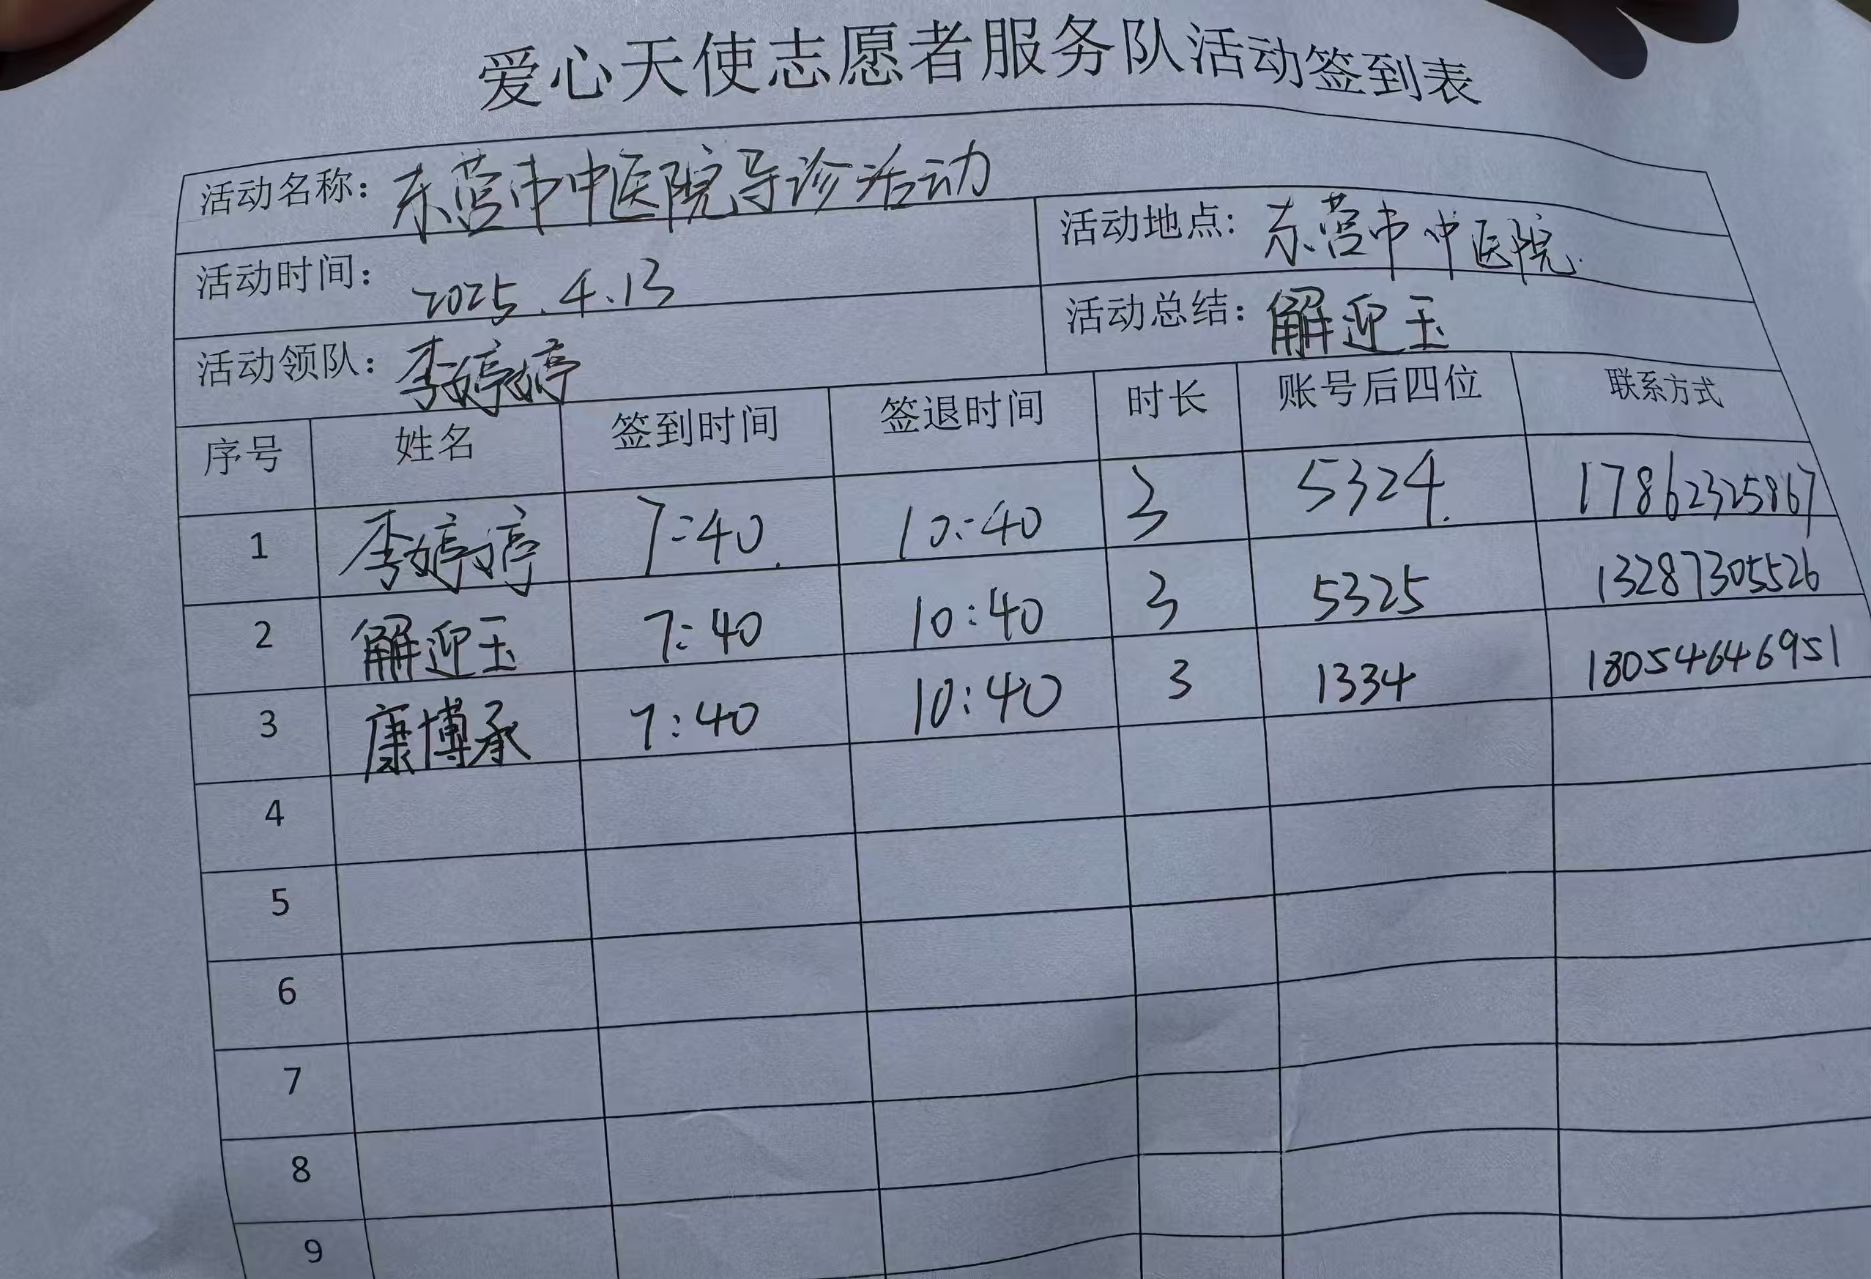 爱心天使志愿者服务队活动签到表
活动名称：东营市中医院导诊活动
活动时间：2025.4.13 活动地点：东营市中医院
活动领队：李婷婷 活动总结：解迎玉
序号 姓名 签到时间 签退时间 时长 账号后四位 联系方式
1 李婷婷 7:40 10:40 3 5324 17862325867
2 解迎玉 7:40 10:40 3 5325 13287305526
3 康博承 7:40 10:40 3 1334 18054646951
4
5
6
7
8
9